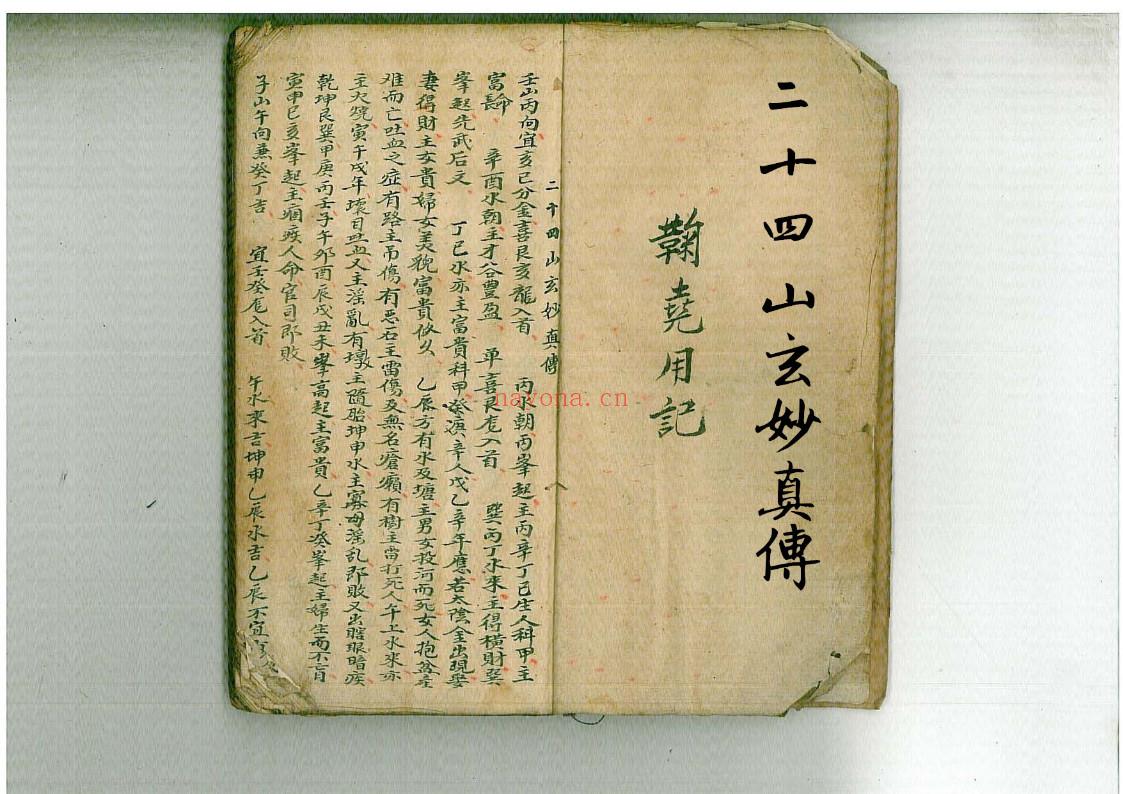 二十四山玄妙真傳
鞠堯用記
二十四山玄妙真傳
壬山丙向宜亥巳分金喜艮亥龍入首 丙水朝丙峯起主丙辛丁巳生人科甲主
富壽 辛酉水朝主才谷豐盈 单喜艮龙入首 巽丙丁水來主得橫財巽
峯起先武后文 丁巳水亦主富貴科甲癸寅辛人戊乙辛年應若太陰金出現娶
妻得財主女貴婦女美貌富貴悠久 乙辰方有水及塘主男女投河而死女人抱盆產
难而亡吐血之症有路主吊傷有惡石主雷傷及無名瘡癩有樹主雷打死人午上水來亦
主火燒寅午戌年壞目吐血又主淫亂有墩主隨胎坤申水主寡母淫乱即敗又出瞎眼暗疾
乾坤艮巽甲庚丙壬子午卯酉辰戌丑未峯高起主富貴乙辛丁癸峯起主婦生而不亡目
寅申巳亥峯起主痼疾人命官司即敗
子山午向兼癸丁吉 宜壬癸龙入首 午水來吉坤申乙辰水吉乙辰不宜
nayona.cn